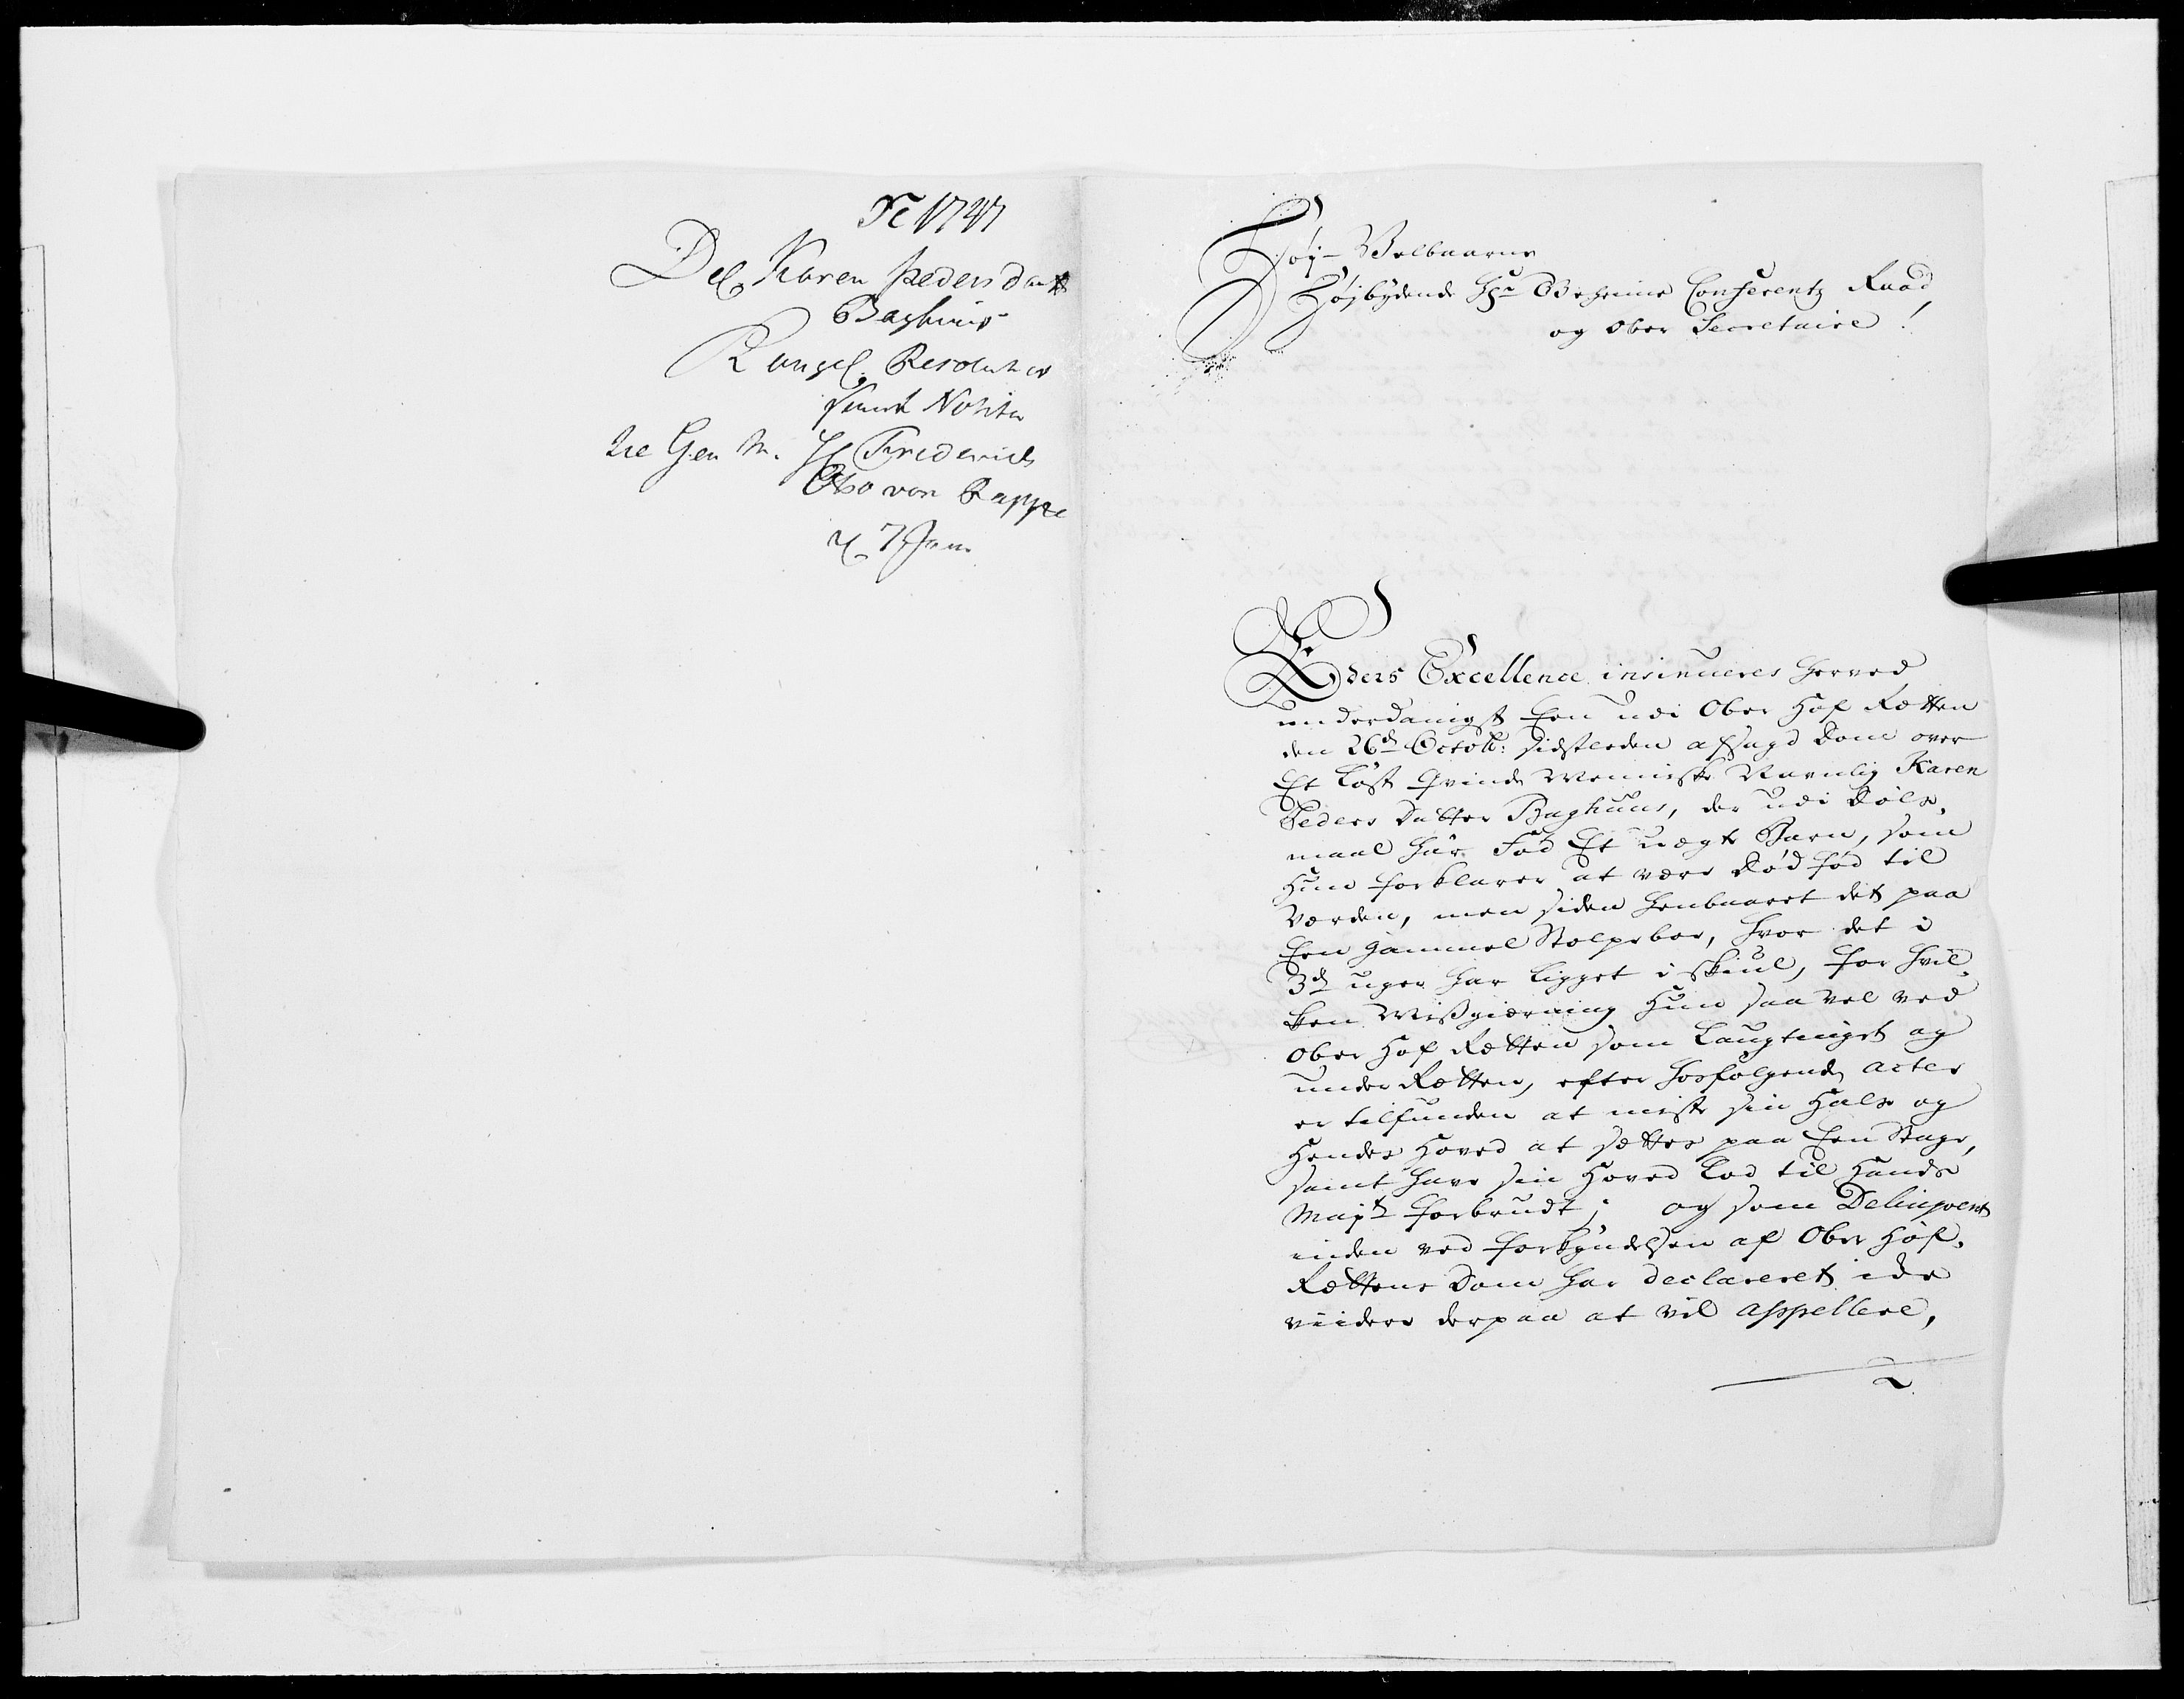 1747
Del Karen Pedersdatt
Baghuus
Kongel. Resolution
samt Notits
Ge Gen M. H Friderich
Otto von Rappe
d 7 Jan.
Høj-Velbaarne
Højbydende Hr Geheime Conferentz Raad
og Ober Secretaire!
Eders Excellence insinueres herved
underdanigst Een udi Ober Hof Retten
den 26d Octob: sidstleden afsagd Dom over
Et Løst Qvinde Menniske Navnlig Karen
Peders Datter Baghuus, der udi Døls-
maal har Fød Et uægte Barn, som
Hun forklarer at være død fød til
Verden, men siden henbaaret det paa
Een gammel Stolpeboe, hvor det i
3de uger har ligget i skiul, for hvil-
ken Misgierning Hun saa vel ved
Ober Hof Retten som Laugtinget og
under Retten, efter hosfølgende acter
er tilfunden at miste sin Hals og
Hendes Hoved at sættes paa Een Stage,
samt have sin Hoved Lod til Hands
Majts forbrudt; og som Delinqvent
inden ved forkyndelsen af Ober Hof-
Rettens Dom har declareret icke
viidere derpaa at vil appellere,